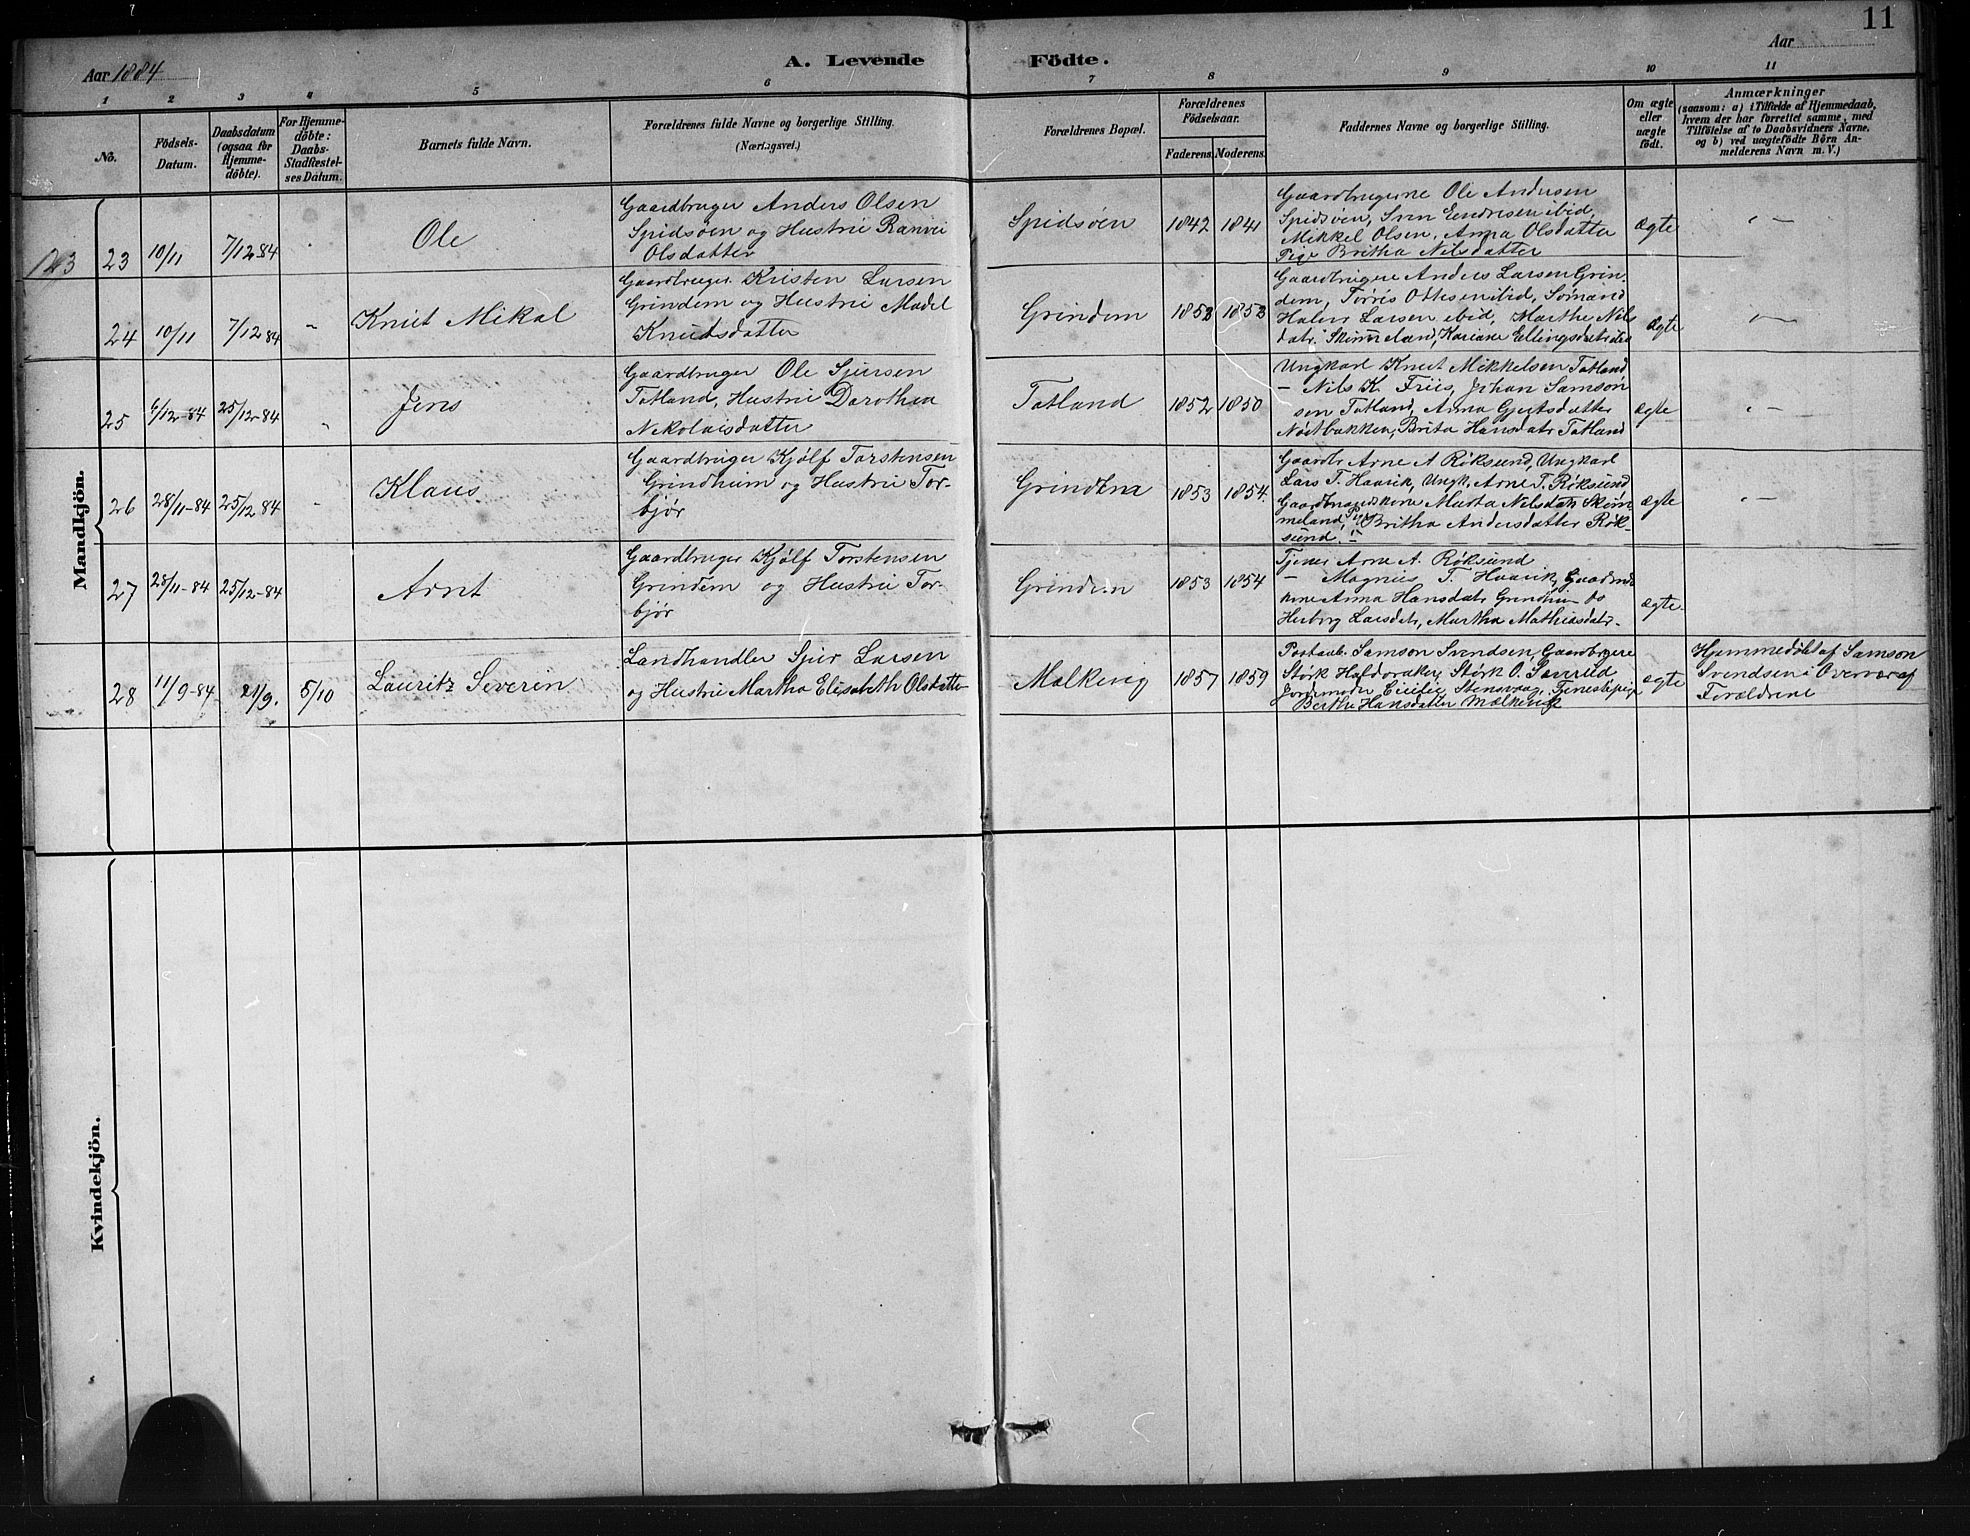 11
Aar 1884
A. Levende
Födte.
Aar
1 2 3 4 5 6 7 8 9 10 11
No.
Födsels-
Datum.
Daabsdatum
(ogsaa for
Hjemme-
döbte).
For Hjemme-
döbte:
Daabs-
Stadfæstel-
ses Datum.
Barnets fulde Navn.
Forældrenes fulde Navne og borgerlige Stilling.
(Næringsvei.)
Forældrenes Bopæl.
Forældrenes
Födselsaar.
Faderens.
Moderens.
Faddernes Navne og borgerlige Stilling.
Om ægte
eller
uægte
født.
Anmærkninger
(saasom: a) i Tilfælde af Hjemmedaab,
hvem der har forrettet samme, med
Tilföielse af to Daabsvidners Navne,
og b) ved uægtefödte Börn An-
melderens Navn m. V.)
Mandkjön.
123
23
10/11
7/12 84
Ole
Gaardbruger Anders Olsen
Spidsøen og Hustrie Ranvei
Olsdatter
Spidsøen
1842
1841
Gaardbrugerne Ole Andersen
Spidsøen, Sven Eendresen ibid,
Mikkel Olsen, Anna Olsdatter
Pige Britha Nilsdatter
ægte
24
10/11
7/12 84
Knut Mikal
Gaardbruger Kristen Larsen
Grindem og Hustrie Madel
Knudsdatter
Grindem
1853
1853
Gaardbrugere Anders Larsen Grin-
dem, Torris Ottesen ibid, Sømand
Larsen ibid, Marthe Nils
datr. Skimmeland, Kariane Ellingsdatr
ægte
25
6/12-84
25/12-84
Jens
Gaardbruger Ole Sjursen
Tatland, Hustrie Dorothea
Nikolaisdatter
Tatland
1852
1850
Ungkarl Knut Mikkelsen Tatland
— Nils K. Friis, Johan Samson
sen Tatland, Anna Gjertsdatter
Nøstbakken, Brita Hansdatr Tatland
ægte
26
28/11-84
25/12 84
Klaus
Gaardbruger Kjølf Torstensen
Grindheim og Hustrie Tor-
bjør
Grindem
1853
1854.
Gaardbr Arne A Røksund, Ungkarl
Lars T. Haavik, Ungk. Arne T. Røksund
Gaardmandskone Marta Nilsdatr Skim
meland, Britha Andersdatter Røk-
sund.
ægte
27
28/11-84
25/12-84
Arnt
Gaardbruger Kjølf Torstensen
Grindem og Hustrie Tor-
bjør
Grindem
1853
1854
Tjener Arne A. Røksund
— Magnus T. Haavik, Gaardmds
kone Anna Hansdatr Grindheim do
Herborg Larsdatr, Martha Mathiasdatr.
ægte.
28
11/9-84
21/9.
5/10
Lauritz Severin
Landhandler Sjur Larsen
og Hustrie Martha Elisabeth Olsdatter
Malkevig
1857
1859
Postaab. Samson Svendsen, Gaardbrugere
Størk Størk O.
Jordemoder Cicilie Stensvaag, Tjenestepige
Berthe Hansdatter Mælkevik
ægte
Hjemmedøbt af Samson
Svendsen i Overvær af
Forældrene
Kvindekjön.